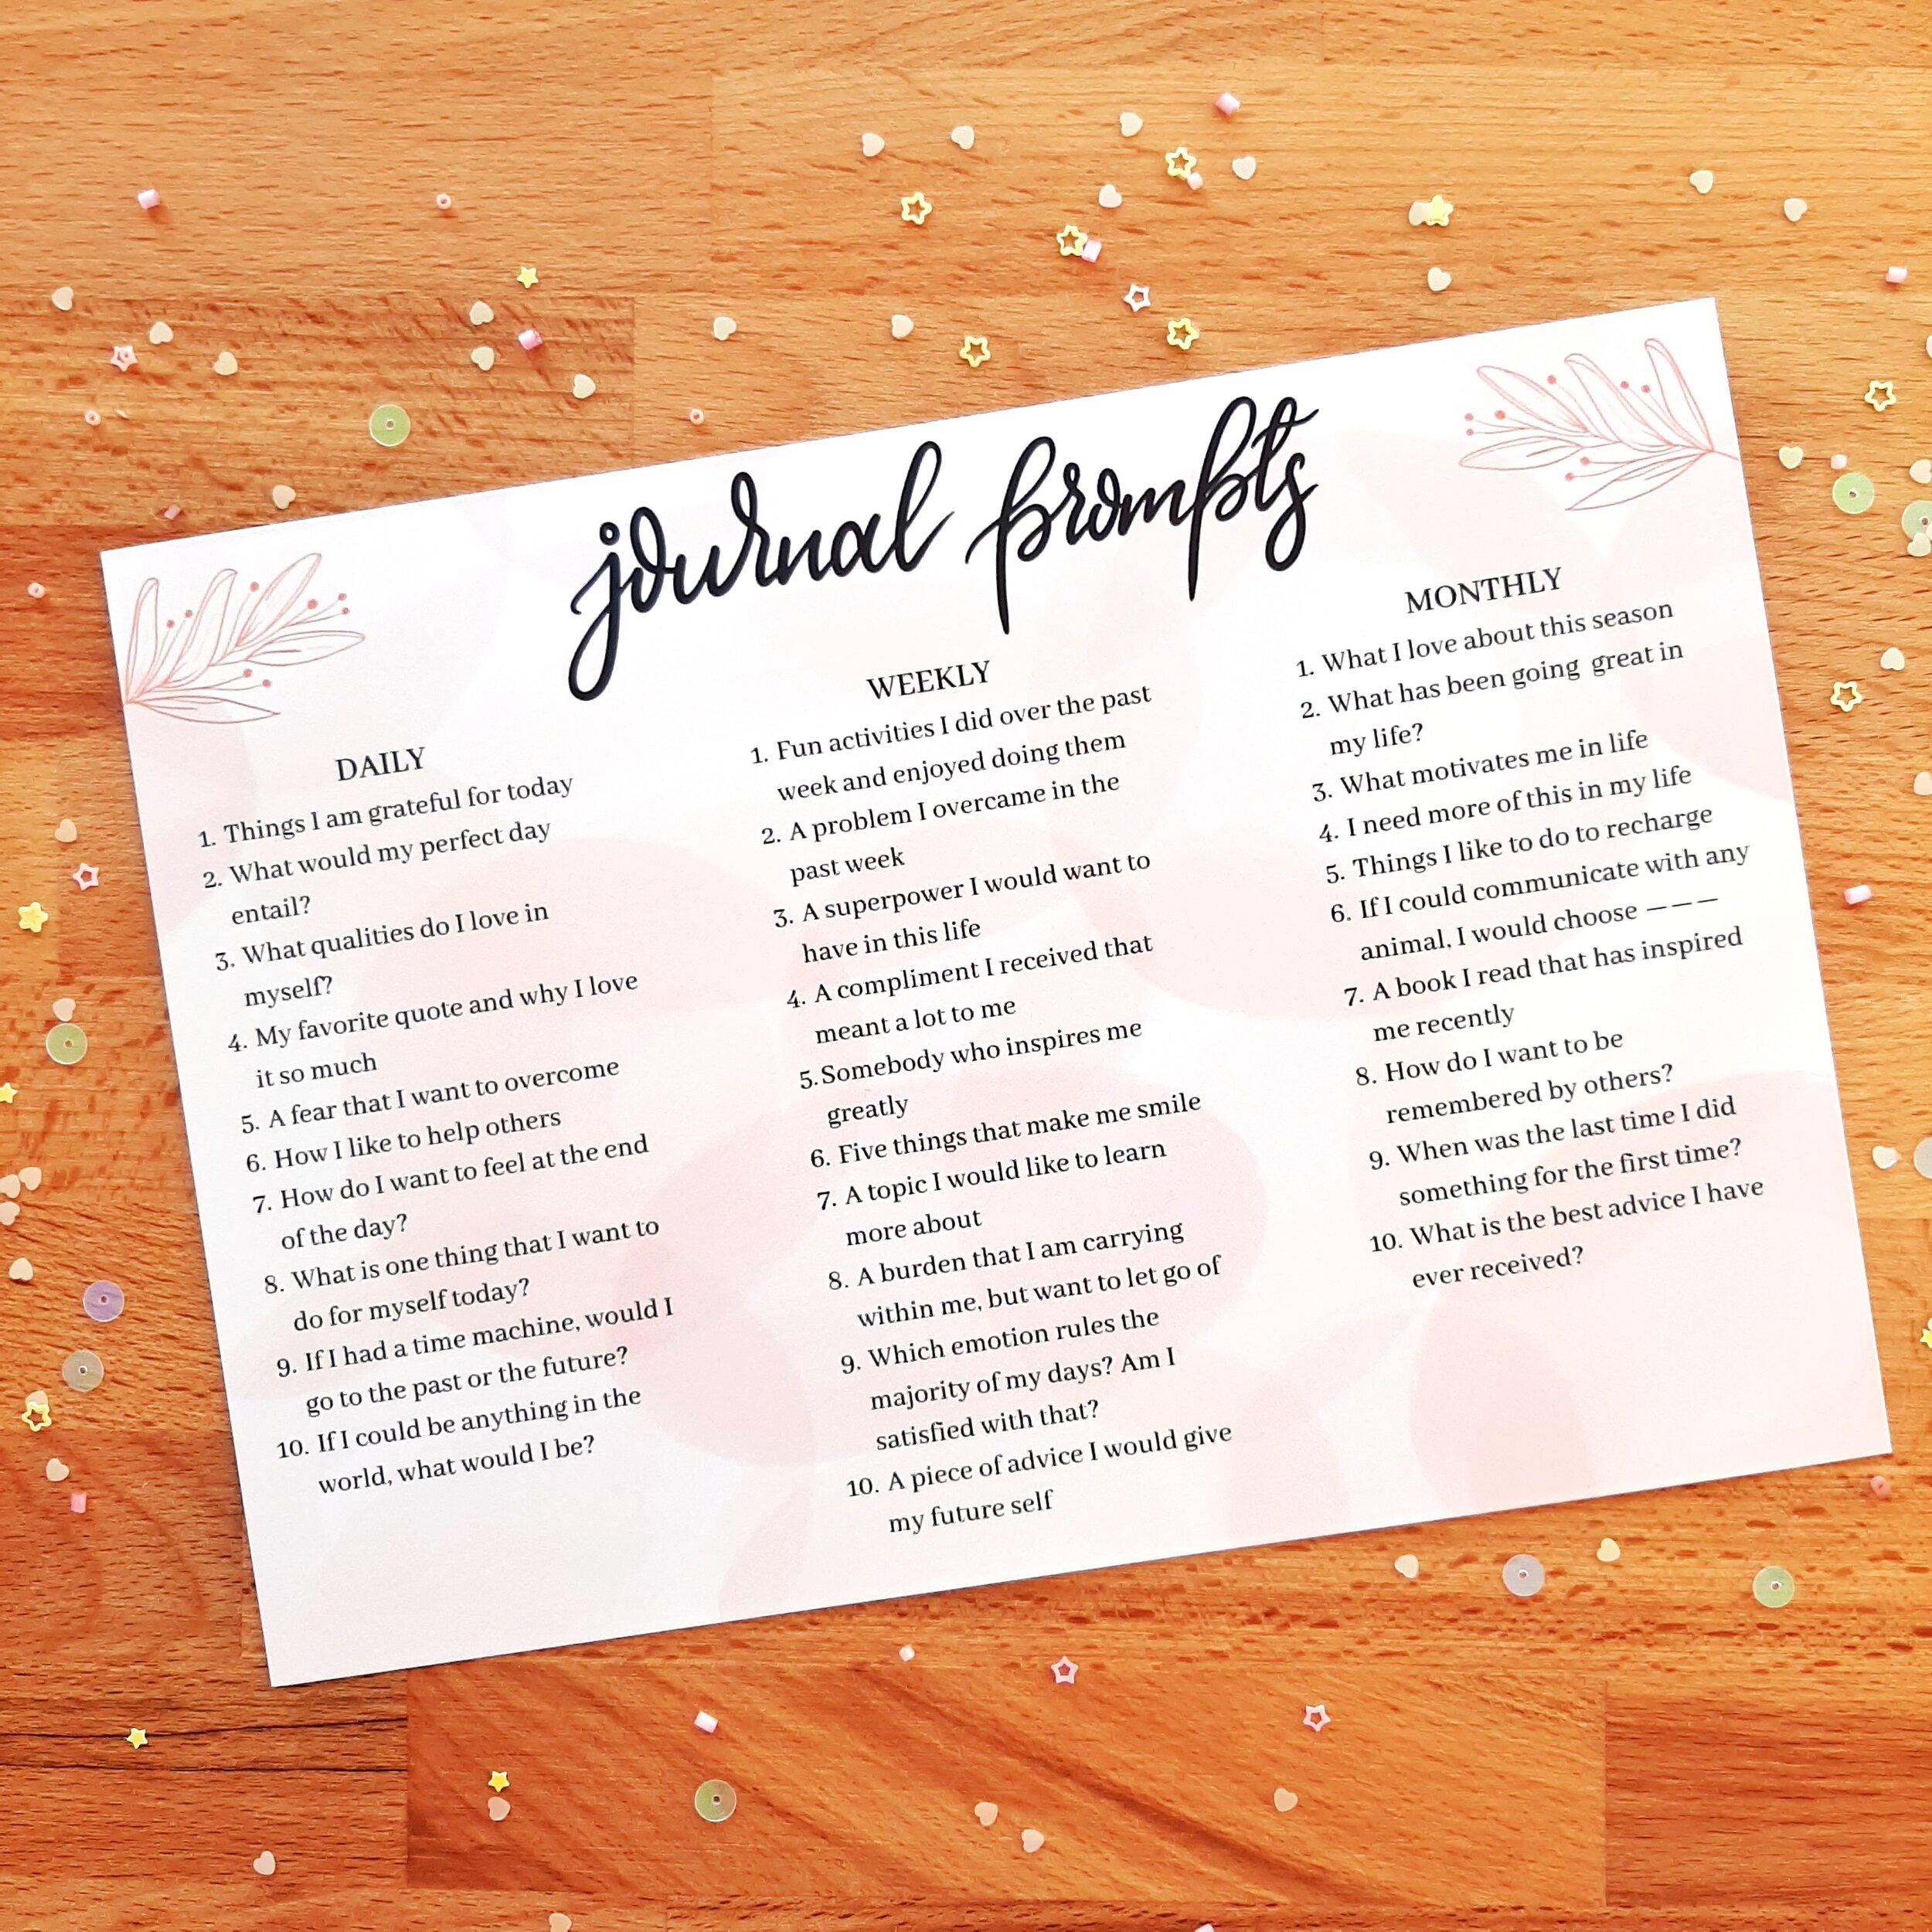 journal prompts
DAILY
1. Things I am grateful for today
2. What would my perfect day
entail?
3. What qualities do I love in
myself?
4. My favorite quote and why I love
it so much
5. A fear that I want to overcome
6. How I like to help others
7. How do I want to feel at the end
of the day?
8. What is one thing that I want to
do for myself today?
9. If I had a time machine, would I
go to the past or the future?
10. If I could be anything in the
world, what would I be?
WEEKLY
1. Fun activities I did over the past
week and enjoyed doing them
2. A problem I overcame in the
past week
3. A superpower I would want to
have in this life
4. A compliment I received that
meant a lot to me
5.Somebody who inspires me
greatly
6. Five things that make me smile
7. A topic I would like to learn
more about
8. A burden that I am carrying
within me, but want to let go of
9. Which emotion rules the
majority of my days? Am I
satisfied with that?
10. A piece of advice I would give
my future self
MONTHLY
1. What I love about this season
2. What has been going  great in
my life?
3. What motivates me in life
4. I need more of this in my life
5. Things I like to do to recharge
6. If I could communicate with any
animal, I would choose ———
7. A book I read that has inspired
me recently
8. How do I want to be
remembered by others?
9. When was the last time I did
something for the first time?
10. What is the best advice I have
ever received?